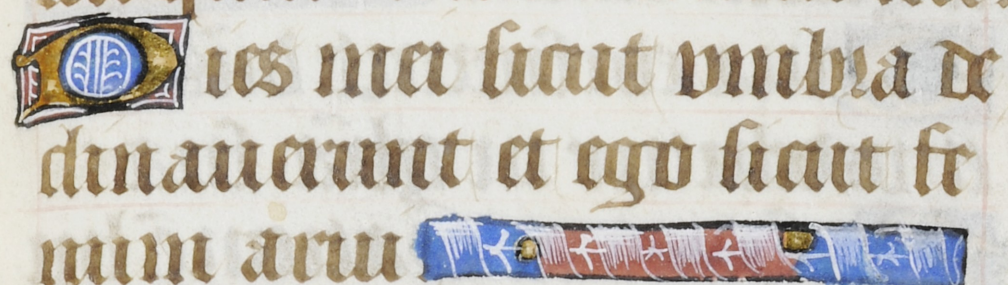 Dies mei sicut vmbra de
clinauerunt et ego sicut fe
num arui